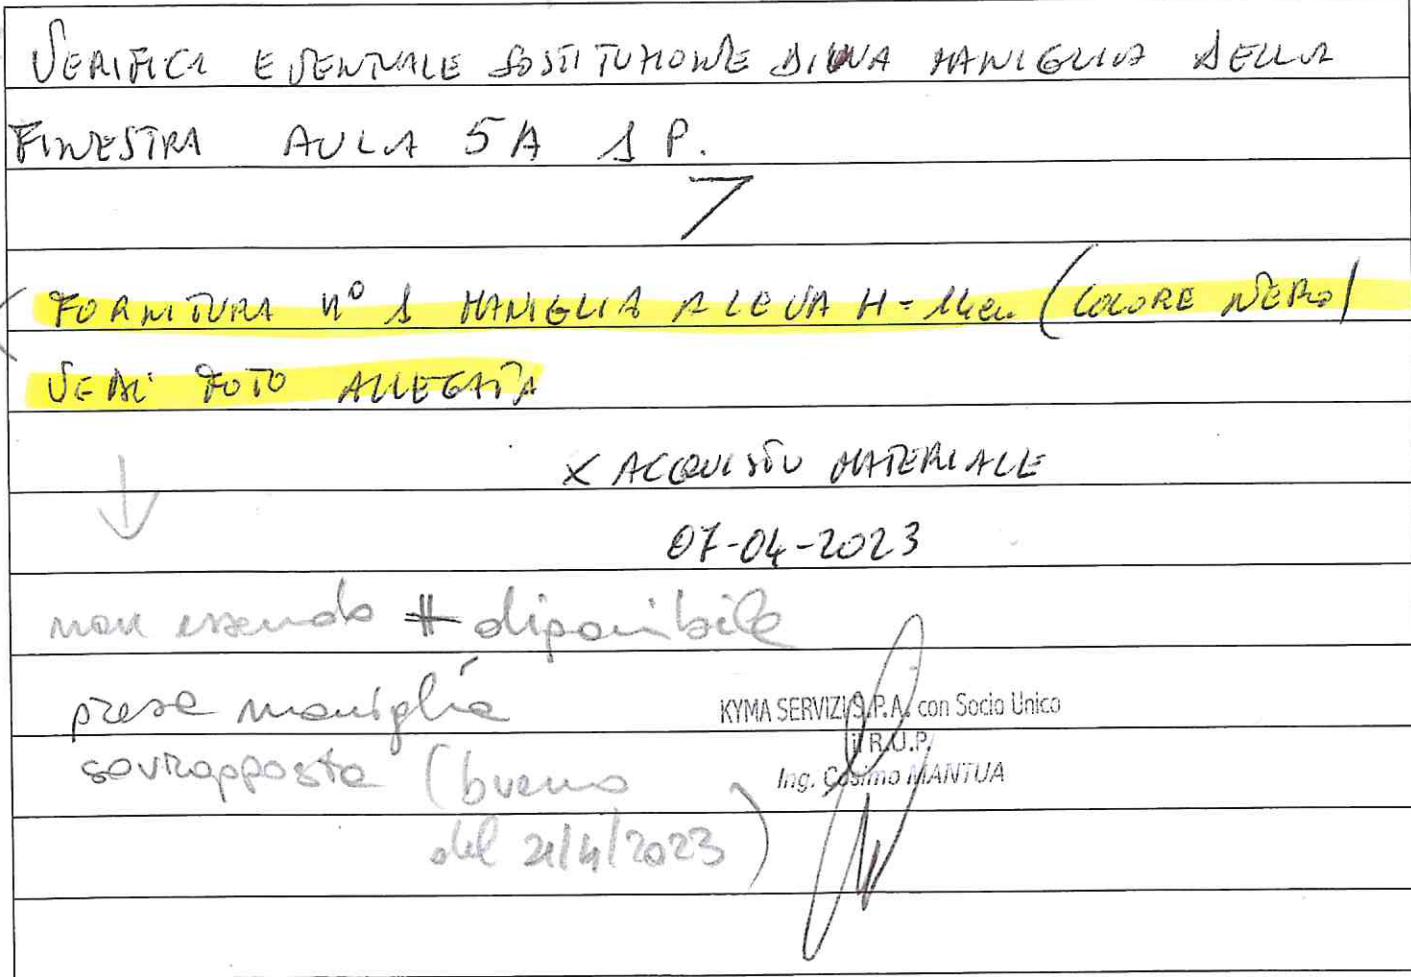 VERIFICA EVENTUALE SOSTITUZIONE DI UNA MANIGLIA DELLA
FINESTRA AULA 5A 1 P.
FORNITURA N° 1 MANIGLIA A LEVA H= 14cm (COLORE NERO)
VEDI FOTO ALLEGATA
X ACQUISTO MATERIALE
07-04-2023
non essendo disponibile
presa maniglia
sovrapposta (buono
del 21/4/2023)
KYMA SERVIZI S.P.A. con Socio Unico
il R.U.P.
Ing. Cosimo MANTUA